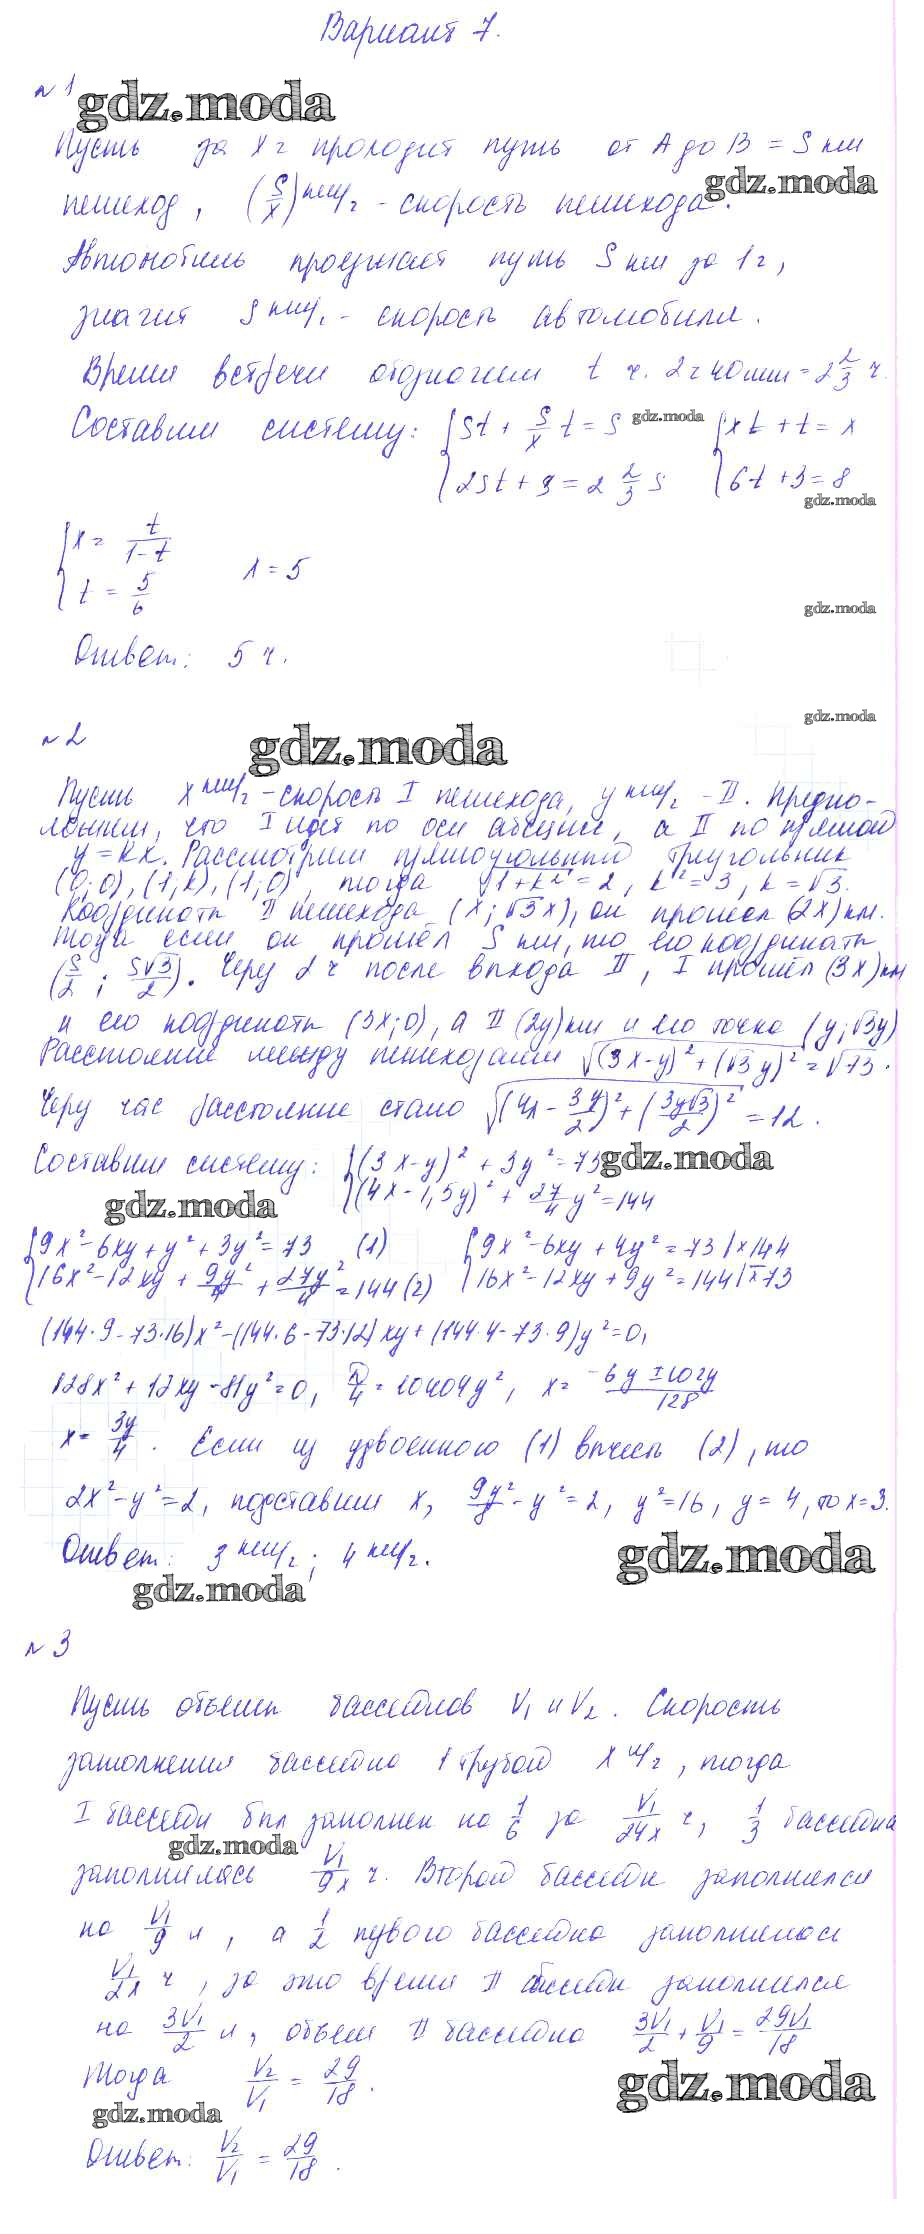 Вариант 7.
№ 1
gdz.moda
Пусть за x ч проходит путь от A до B = S км
gdz.moda
пешеход, (S/x) км/ч - скорость пешехода.
Автомобиль проезжает путь S км за 1 ч,
значит S км/ч - скорость автомобиля.
Время встречи обозначим t ч. 2 ч 40 мин = 2 2/3 ч.
Составим систему: { St + S/x t = S gdz.moda { xt + t = x
{ 2St + 9 = 2 2/3 S { 6t + 3 = 8
gdz.moda
{ x = t/(1-t)
{ t = 5/6 x = 5
gdz.moda
Ответ: 5 ч.
gdz.moda
№ 2
gdz.moda
Пусть x км/ч - скорость I пешехода, y км/ч - II. Предпо-
ложим, что I идет по оси абсцисс, а II по прямой
y = kx. Рассмотрим прямоугольный треугольник
(0;0), (1;k), (1;0), тогда √(1+k²) = 2, k² = 3, k = √3.
Координаты II пешехода (x; √3x), он прошел (2x) км.
Тогда если он прошёл S км, то его координаты
(S/2 ; S√3/2). Через 2 ч после выхода II, I прошёл (3x) км
и его координаты (3x; 0), а II (2y) км и его точка (y; √3y)
Расстояние между пешеходами √((3x-y)² + (√3y)²) = √73.
Через час расстояние стало √((4x - 3y/2)² + (3y√3/2)²) = 12.
Составим систему: { (3x-y)² + 3y² = 73 gdz.moda
{ (4x - 1,5y)² + 27/4 y² = 144
gdz.moda
{ 9x² - 6xy + y² + 3y² = 73 (1) { 9x² - 6xy + 4y² = 73 | × 144
{ 16x² - 12xy + 9y²/4 + 27y²/4 = 144 (2) { 16x² - 12xy + 9y² = 144 | × 73
(144·9 - 73·16)x² - (144·6 - 73·12)xy + (144·4 - 73·9)y² = 0,
128x² + 12xy - 81y² = 0, D/4 = 10404y², x = (-6y ± 102y)/128
x = 3y/4. Если из удвоенного (1) вычесть (2), то
2x² - y² = 2, подставим x, 9y²/8 - y² = 2, y² = 16, y = 4, то x = 3.
Ответ: 3 км/ч; 4 км/ч.
gdz.moda
gdz.moda
№ 3
Пусть объем бассейнов V₁ и V₂. Скорость
заполнения бассейна 1 трубой x л/ч, тогда
I бассейн был заполнен на 1/6 за V₁/24x ч, 1/3 бассейна
gdz.moda
заполнялась V₁/9x ч. Второй бассейн заполнился
на V₁/9 л, а 1/2 первого бассейна заполнилась
V₁/2x ч, за это время II бассейн заполнился
на 3V₁/2 л, объем II бассейна 3V₁/2 + V₁/9 = 29V₁/18
Тогда V₂/V₁ = 29/18.
gdz.moda
gdz.moda
Ответ: V₂/V₁ = 29/18.